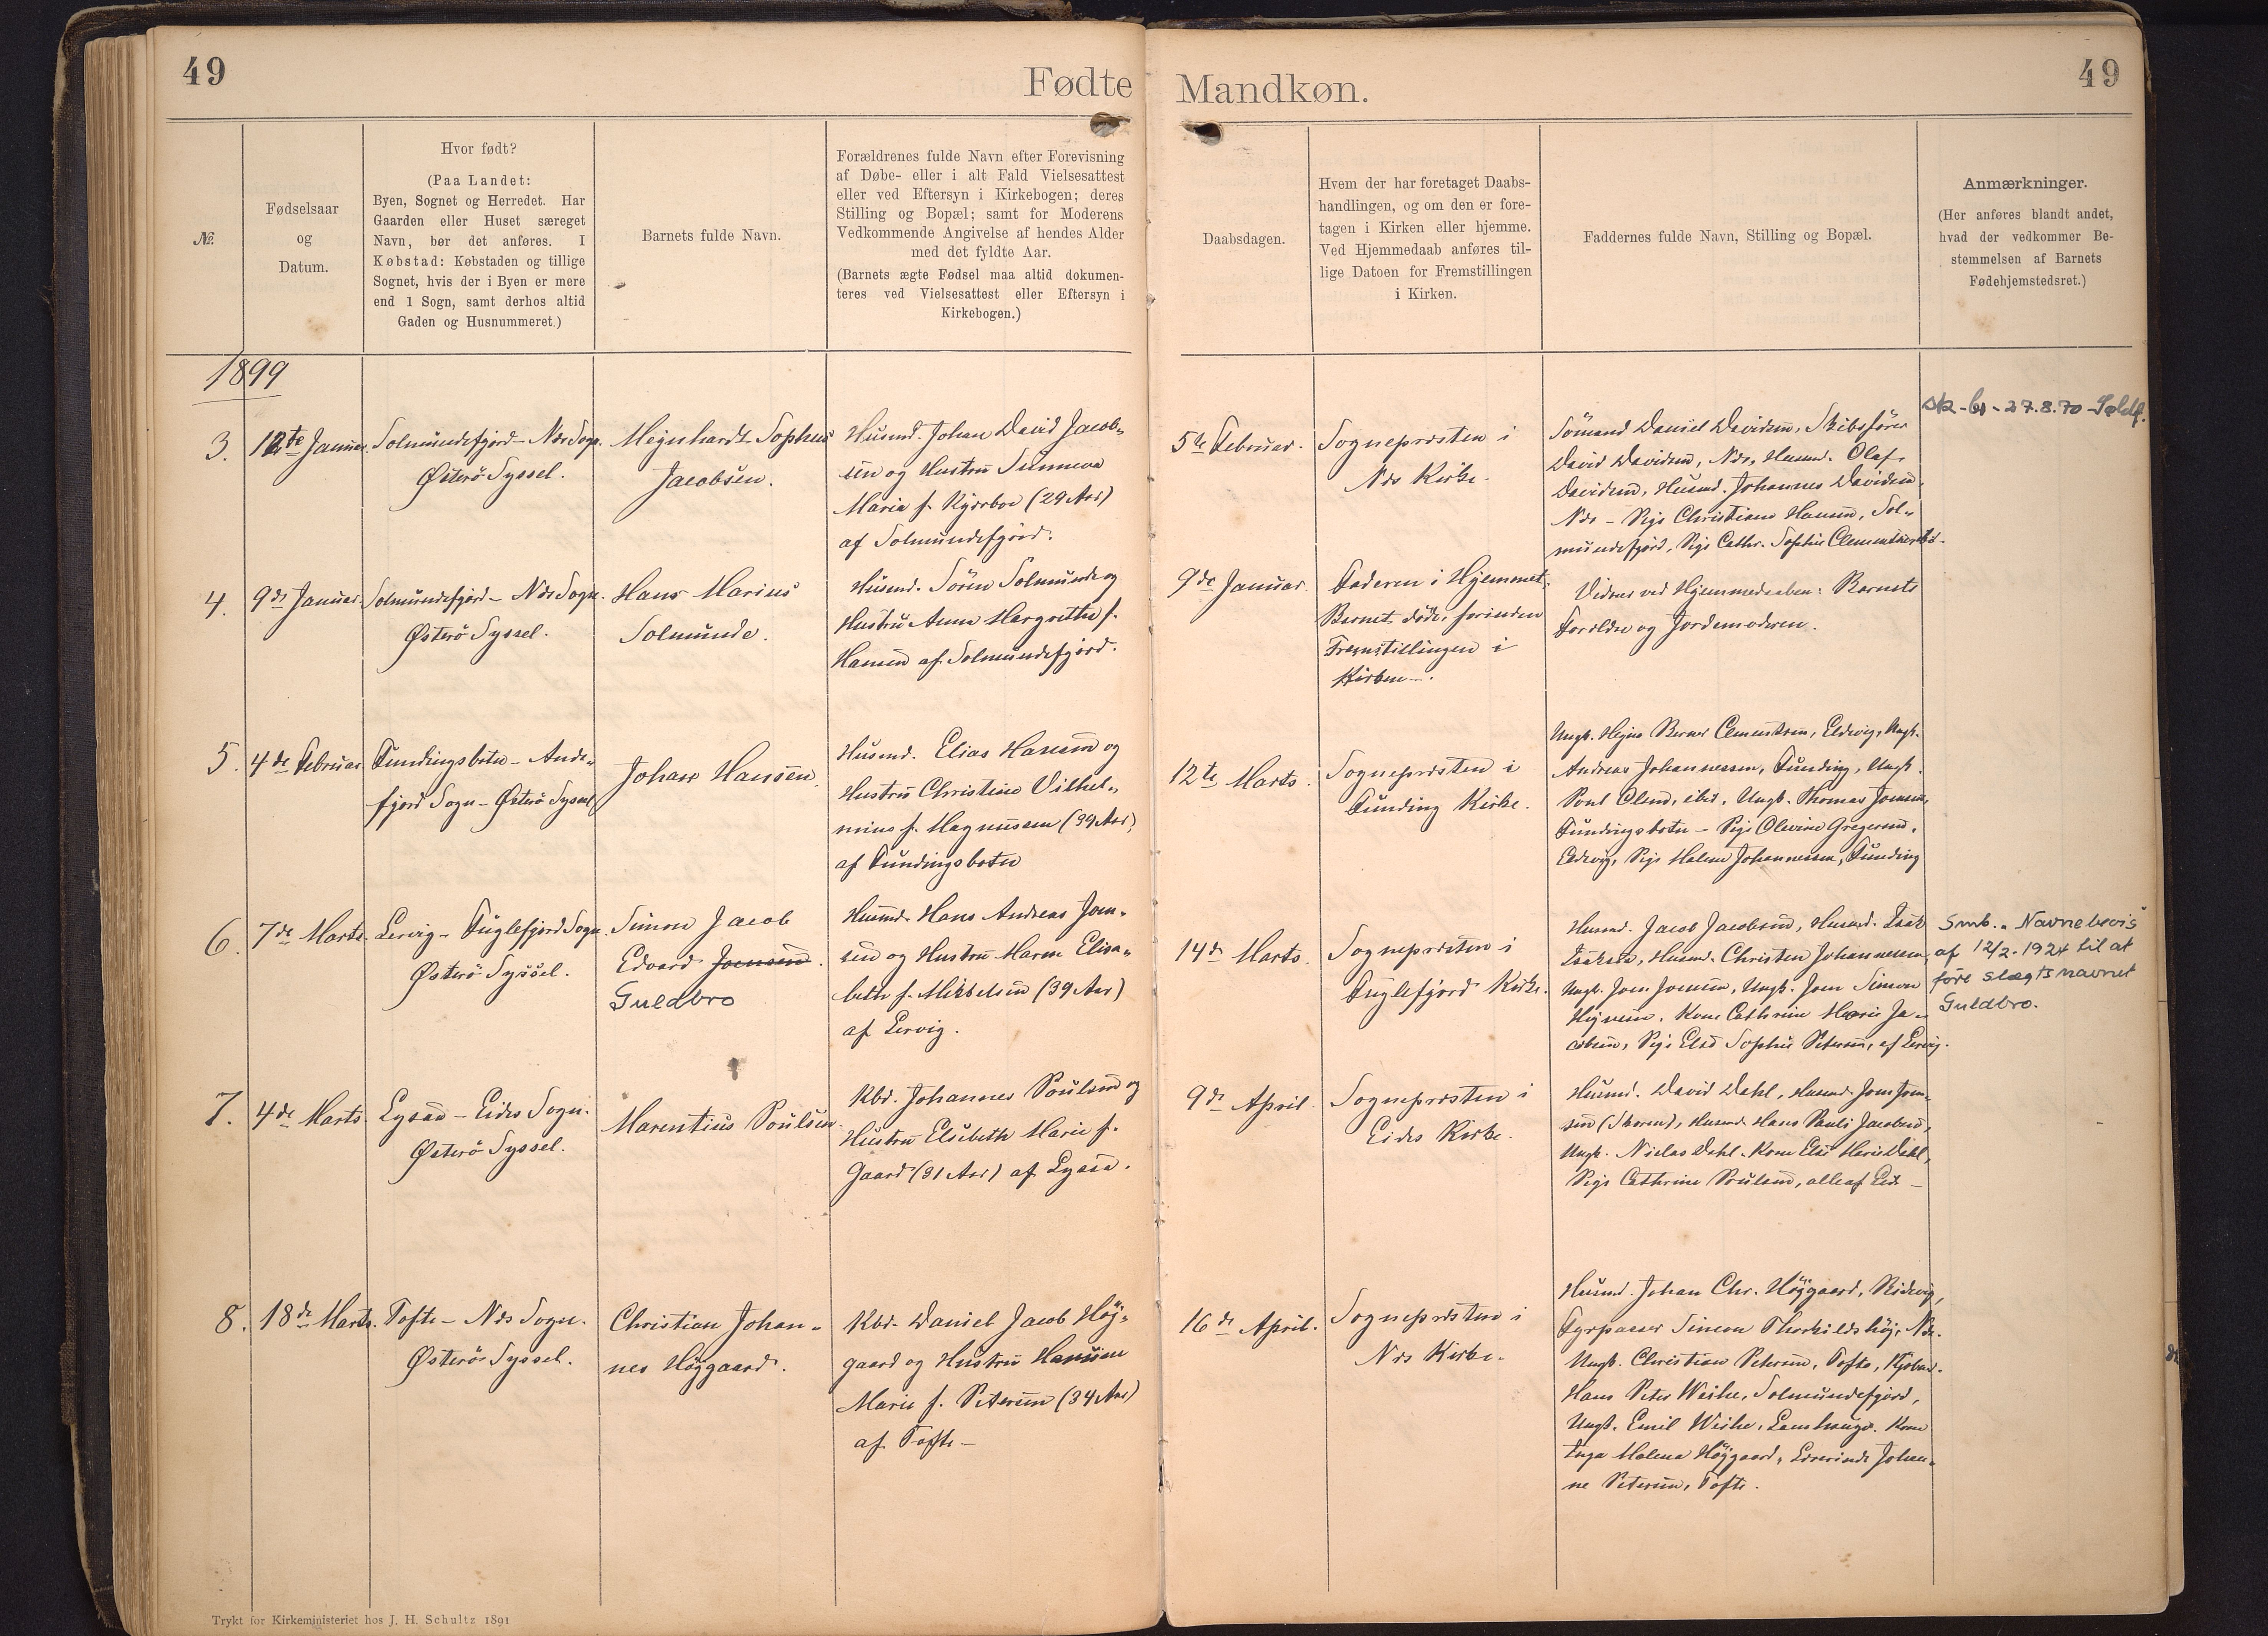 49
Fødte
Mandkøn.
49
№.
Fødselsaar
og
Datum.
Hvor født?
(Paa Landet:
Byen, Sognet og Herredet. Har
Gaarden eller Huset særeget
Navn, bør det anføres. I
Købstad: Købstaden og tillige
Sognet, hvis der i Byen er mere
end 1 Sogn, samt derhos altid
Gaden og Husnummeret.)
Barnets fulde Navn.
Forældrenes fulde Navn efter Forevisning
af Døbe- eller i alt Fald Vielsesattest
eller ved Eftersyn i Kirkebogen; deres
Stilling og Bopæl; samt for Moderens
Vedkommende Angivelse af hendes Alder
med det fyldte Aar.
(Barnets ægte Fødsel maa altid dokumen-
teres ved Vielsesattest eller Eftersyn i
Kirkebogen.)
Daabsdagen.
Hvem der har foretaget Daabs-
handlingen, og om den er fore-
tagen i Kirken eller hjemme.
Ved Hjemmedaab anføres til-
lige Datoen for Fremstillingen
i Kirken.
Faddernes fulde Navn, Stilling og Bopæl.
Anmærkninger.
(Her anføres blandt andet,
hvad der vedkommer Be-
stemmelsen af Barnets
Fødehjemstedsret.)
1899
3.
12te Januar.
Solmundefjord - Næs Sogn.
Østerö Syssel.
Meinhardt Sophus
Jacobsen.
Husmd. Johan David Jacob-
sen og Hustru Sunneva
Maria f. Kjærbo (29 Aar)
af Solmundefjord.
5te Februar.
Sognepræsten i
Næs Kirke.
Sömand Daniel Davidsen, Skibsförer
David Davidsen, Næs, Husmd. Olaf
Davidsen, Husmd. Johannes Davidsen,
Næs - Pige Christiane Hansen, Sol-
mundefjord, Pige Cathr. Sophie Clementsen
sk-br-27.8.70
4.
9de Januar.
Solmundefjord - Næs Sogn.
Østerö Syssel.
Hans Marius
Solmunde.
Husmd. Sören Solmunde og
Hustru Anne Margrethe f.
Hansen af Solmundefjord.
9de Januar.
Faderen i Hjemmet.
Barnet döde forinden
Fremstillingen i
Kirken -.
Vidner ved Hjemmedaaben: Barnets
Forældre og Jordemoderen.
5.
4de Februar
Fundingsbotn - Ande-
fjord Sogn - Østerö Syssel
Johan Hansen.
Husmd. Elias Hansen og
Hustru Christine Vilhel-
mine f. Magnussen (39 Aar)
af Fundingsbotn
12te Marts.
Sognepræsten i
Funding Kirke.
Ungk. Berner Clementsen, Eldevig, Ungk.
Andreas Johannessen, Funding, Ungk.
Poul Olsen, ibid, Ungk. Thomas Joensen,
Fundingsbotn - Pige Olevine Gregersen,
Eldevig, Pige Malene Johannessen, Funding
6.
7de Marts.
Lervig - Fuglefjord Sogn.
Østerö Syssel.
Simon Jacob
Edvard Joensen.
Guldbro
Husmd. Hans Andreas Joen-
sen og Hustru Maren Elisa-
beth f. Mikkelsen (39 Aar)
af Lervig.
14de Marts.
Sognepræsten i
Fuglefjord Kirke.
Husmd. Jacob Jacobsen, Husmd. Isak
Isaksen, Husmd. Christen Johannessen,
Ungk. Joen Joensen, Ungk. Joen Simon
Højnesen, Kone Cathrine Marie Ja-
cobsen, Pige Else Sophie Petersen, af Lervig.
Smb. "Navnebevis"
af 12/2-1924 til at
føre slægtsnavnet
Guldbro.
7.
4de Marts.
Lysaa - Eides Sogn.
Østerö Syssel.
Marentius Poulsen.
Kbd. Johannes Poulsen og
Hustru Elsebeth Marie f.
Gaard (31 Aar) af Lysaa.
9de April.
Sognepræsten i
Eides Kirke.
Husmd. David Dahl, Husmd. Joen Joen-
sen (Skoren), Husmd. Hans Pauli Jacobsen,
Ungk. Niclas Dahl. Kone Else Marie Dahl,
Pige Cathrine Poulsen, alle af Eide -
8.
18de Marts.
Tofte - Næs Sogn.
Østerös Syssel.
Christian Johan-
nes Höygaard.
Kbd. Daniel Jacob Höj-
gaard og Hustru Hansine
Marie f. Petersen (34 Aar)
af Tofte -
16de April.
Sognepræsten i
Næs Kirke.
Husmd. Johan Chr. Höygaard, Ridevig,
Fyrpasser Simon Thorkildshöj, Næs.
Ungk. Christian Petersen, Tofte, Kjøbmd.
Hans Peter Weihe, Solmundefjord,
Ungk. Emil Weihe, Lamhauge. Kone
Inga Malena Höygaard, Lærerinde Johan-
ne Petersen, Tofte.
Trykt for Kirkeministeriet hos J. H. Schultz 1891